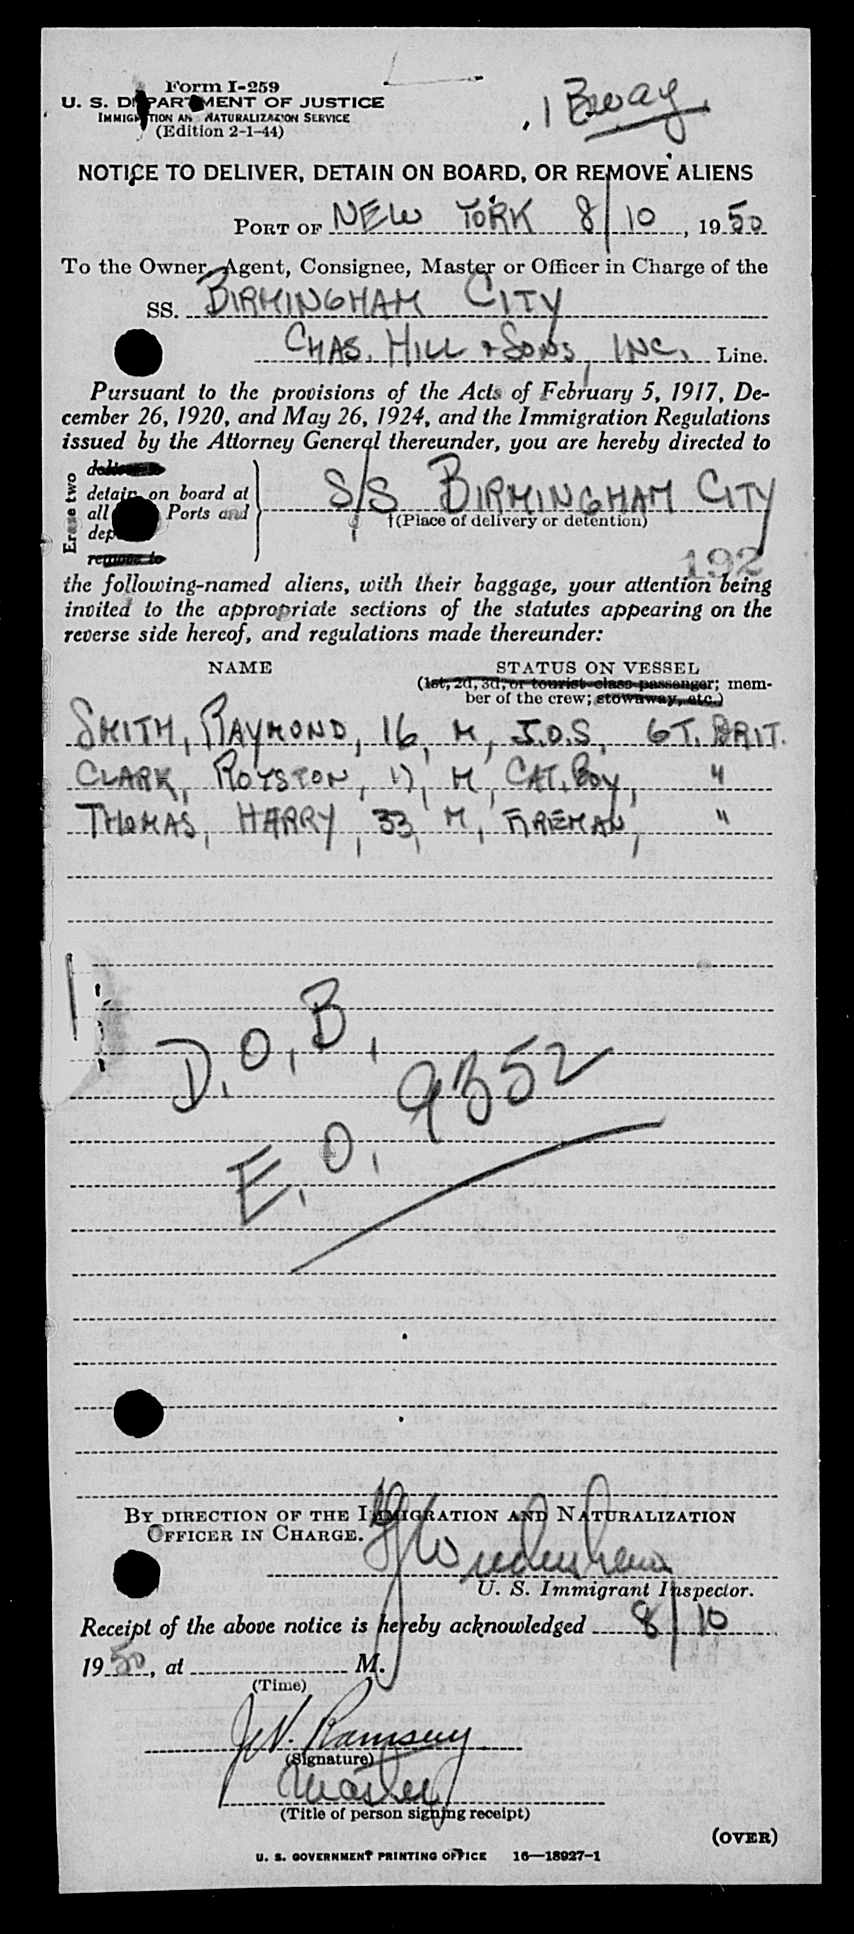 Form I-259
U. S. DEPARTMENT OF JUSTICE
IMMIGRATION AND NATURALIZATION SERVICE
(Edition 2-1-44)
1 Bway
NOTICE TO DELIVER, DETAIN ON BOARD, OR REMOVE ALIENS
PORT OF NEW YORK 8/10, 1950
To the Owner, Agent, Consignee, Master or Officer in Charge of the
SS. BIRMINGHAM CITY
CHAS. HILL + SONS, INC. Line.
Pursuant to the provisions of the Acts of February 5, 1917, De-
cember 26, 1920, and May 26, 1924, and the Immigration Regulations
issued by the Attorney General thereunder, you are hereby directed to
Erase two
deliver to
detain on board at
all Ports and
dep
remove to
S/S BIRMINGHAM CITY
†(Place of delivery or detention)
192
the following-named aliens, with their baggage, your attention being
invited to the appropriate sections of the statutes appearing on the
reverse side hereof, and regulations made thereunder:
NAME STATUS ON VESSEL
(1st, 2d, 3d, or tourist-class passenger; mem-
ber of the crew; stowaway, etc.)
SMITH, RAYMOND, 16, M, J.O.S, GT. BRIT.
CLARK, ROYSTON, 17, M, CAT. BOY, "
THOMAS, HARRY, 33, M, FIREMAN, "
D.O.B.
E.O. 9352
BY DIRECTION OF THE IMMIGRATION AND NATURALIZATION
OFFICER IN CHARGE.
U. S. Immigrant Inspector.
Receipt of the above notice is hereby acknowledged 8/10
1950, at M.
(Time)
Ramsey
(Signature)
Master
(Title of person signing receipt)
(OVER)
U. S. GOVERNMENT PRINTING OFFICE 16—18927-1